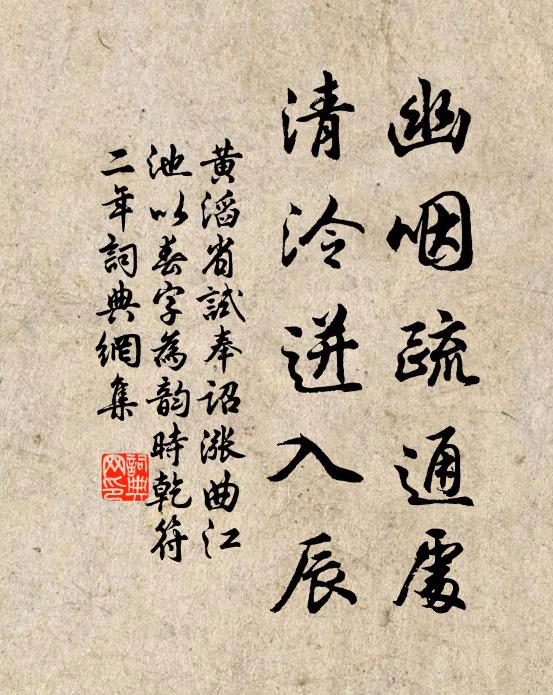 幽咽疏通處
清泠迸入辰
黃滔省試奉詔漲曲江
池以春字為韵時乾符
二年詞典網集
詞典
网印